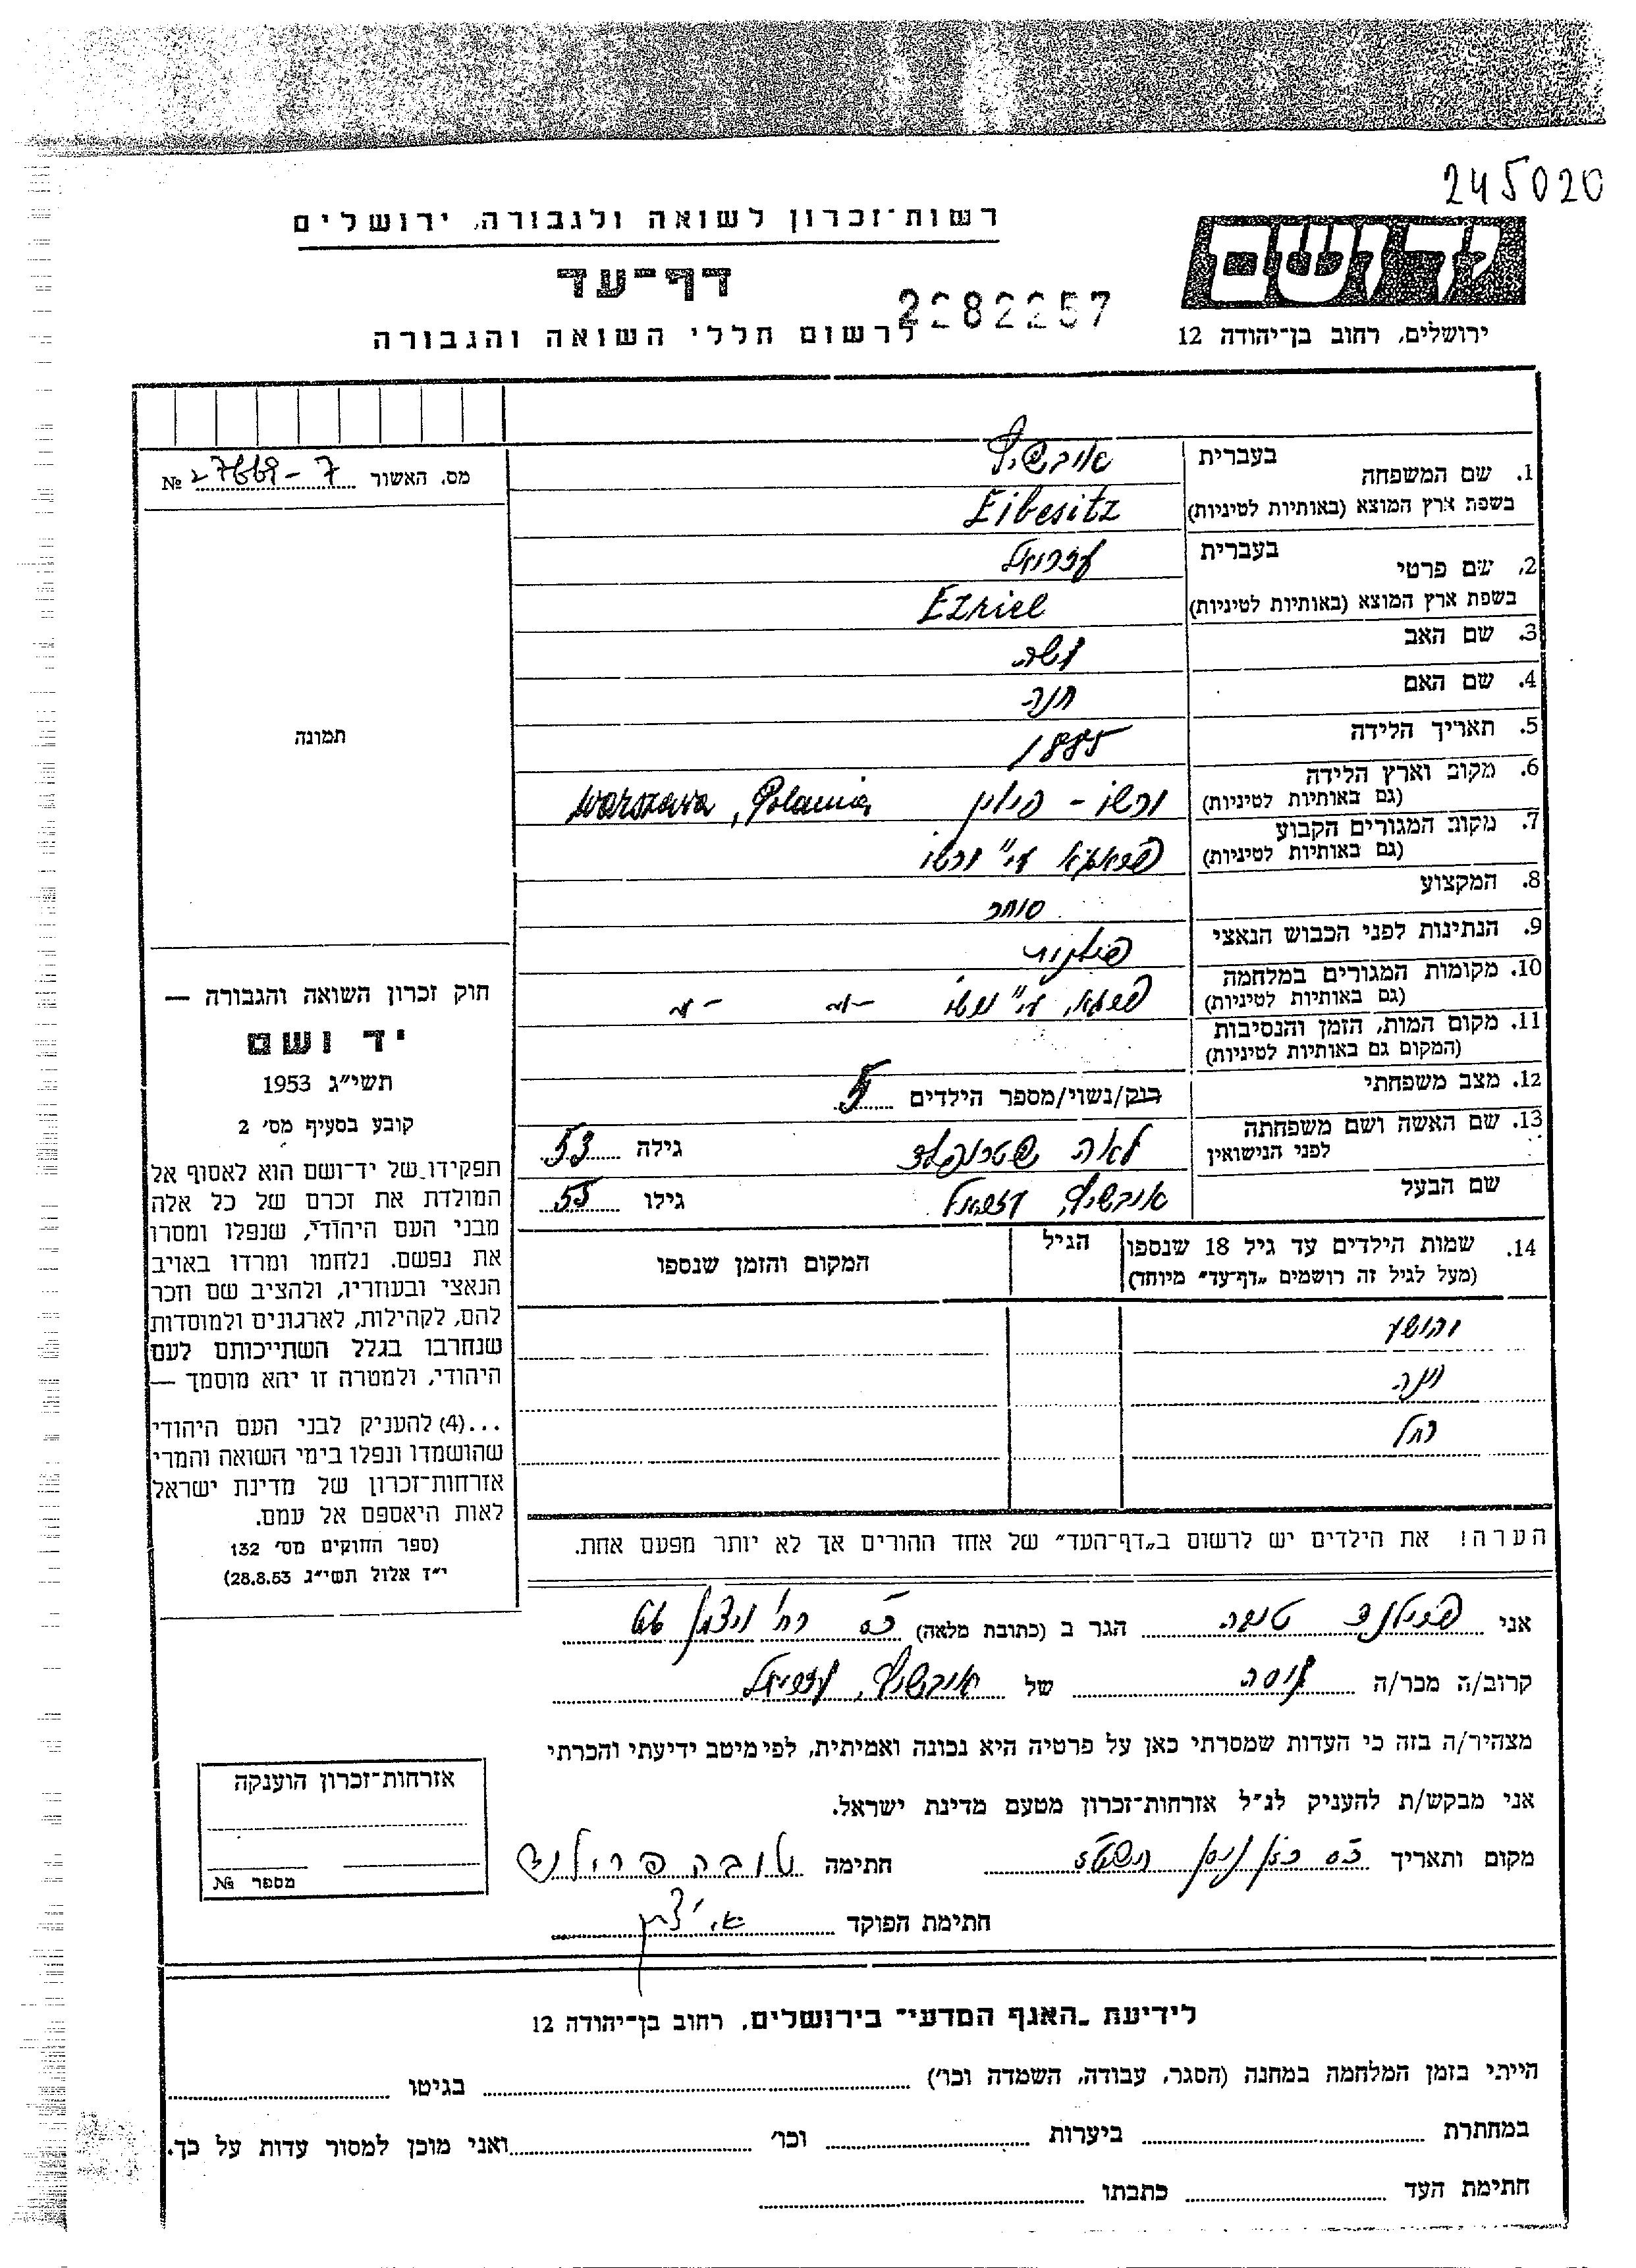 245020
רשות־זכרון לשואה ולגבורה, ירושלים
ידושם
דף־עד
2282257
לרשום חללי השואה והגבורה
ירושלים, רחוב בן־יהודה 12
מס. האשור № 27669-7
1. שם המשפחה בעברית אייבשיץ
בשפת ארץ המוצא (באותיות לטיניות) Eibesitz
2. שם פרטי בעברית עזריאל
בשפת ארץ המוצא (באותיות לטיניות) Ezriel
3. שם האב משה
4. שם האם חנה
5. תאריך הלידה 1885
6. מקום וארץ הלידה ורשו - פולין Warszawa, Polania
(גם באותיות לטיניות)
7. מקום המגורים הקבוע ע"י ורשו
(גם באותיות לטיניות)
8. המקצוע סוחר
9. הנתינות לפני הכבוש הנאצי פולנית
10. מקומות המגורים במלחמה ע"י ורשו
(גם באותיות לטיניות)
11. מקום המות, הזמן והנסיבות
(המקום גם באותיות לטיניות)
12. מצב משפחתי רווק/נשוי/מספר הילדים 5
13. שם האשה ושם משפחתה לאה שטרנפלד גילה 53
לפני הנישואין
שם הבעל אייבשיץ עזריאל גילו 55
14. שמות הילדים עד גיל 18 שנספו הגיל המקום והזמן שנספו
(מעל לגיל זה רושמים "דף־עד" מיוחד)
יהושע
רחל
תמונה
חוק זכרון השואה והגבורה —
יד ושם
תשי"ג 1953
קובע בסעיף מס׳ 2
תפקידו של יד־ושם הוא לאסוף אל
המולדת את זכרם של כל אלה
מבני העם היהודי, שנפלו ומסרו
את נפשם, נלחמו ומרדו באויב
הנאצי ובעוזריו, ולהציב שם וזכר
להם, לקהילות, לארגונים ולמוסדות
שנחרבו בגלל השתייכותם לעם
היהודי, ולמטרה זו יהא מוסמך —
...(4) להעניק לבני העם היהודי
שהושמדו ונפלו בימי השואה והמרי
אזרחות־זכרון של מדינת ישראל
לאות היאספם אל עמם.
(ספר החוקים מס׳ 132
י"ז אלול תשי"ג 28.8.53)
הערה! את הילדים יש לרשום ב"דף־העד" של אחד ההורים אך לא יותר מפעם אחת.
אני פרילנד טובה הגר ב (כתובת מלאה) רח' ויצמן
קרוב/ה מכר/ה של אייבשיץ, עזריאל
מצהיר/ה בזה כי העדות שמסרתי כאן על פרטיה היא נכונה ואמיתית, לפי מיטב ידיעתי והכרתי
אני מבקש/ת להעניק לנ"ל אזרחות־זכרון מטעם מדינת ישראל.
מקום ותאריך ניסן חתימה טובה פרילנד
חתימת הפוקד
אזרחות־זכרון הוענקה
מספר №
לידיעת "האגף המדעי" בירושלים, רחוב בן־יהודה 12
הייתי בזמן המלחמה במחנה (הסגר, עבודה, השמדה וכו׳) בגיטו
במחתרת ביערות וכו׳ ואני מוכן למסור עדות על כך.
חתימת העד כתבתו